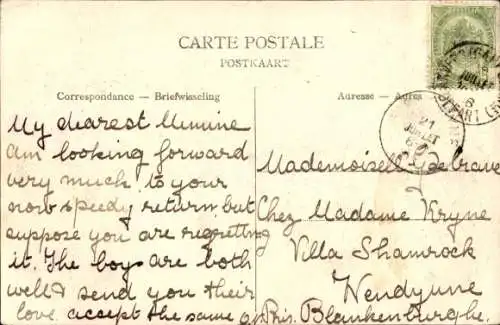 CARTE POSTALE
POSTKAART
Correspondance — Briefwisseling
Adresse — Adres
My dearest Mimine
am looking forward
very much to your
now speedy return, but
suppose you are regretting
it. The boys are both
well & send you their
love. accept the same
Mademoisell
Chez Madame Kryne
Villa Shamrock
Wendyune
Pris. Blankenburghe.
21
JUILLET
DEPART